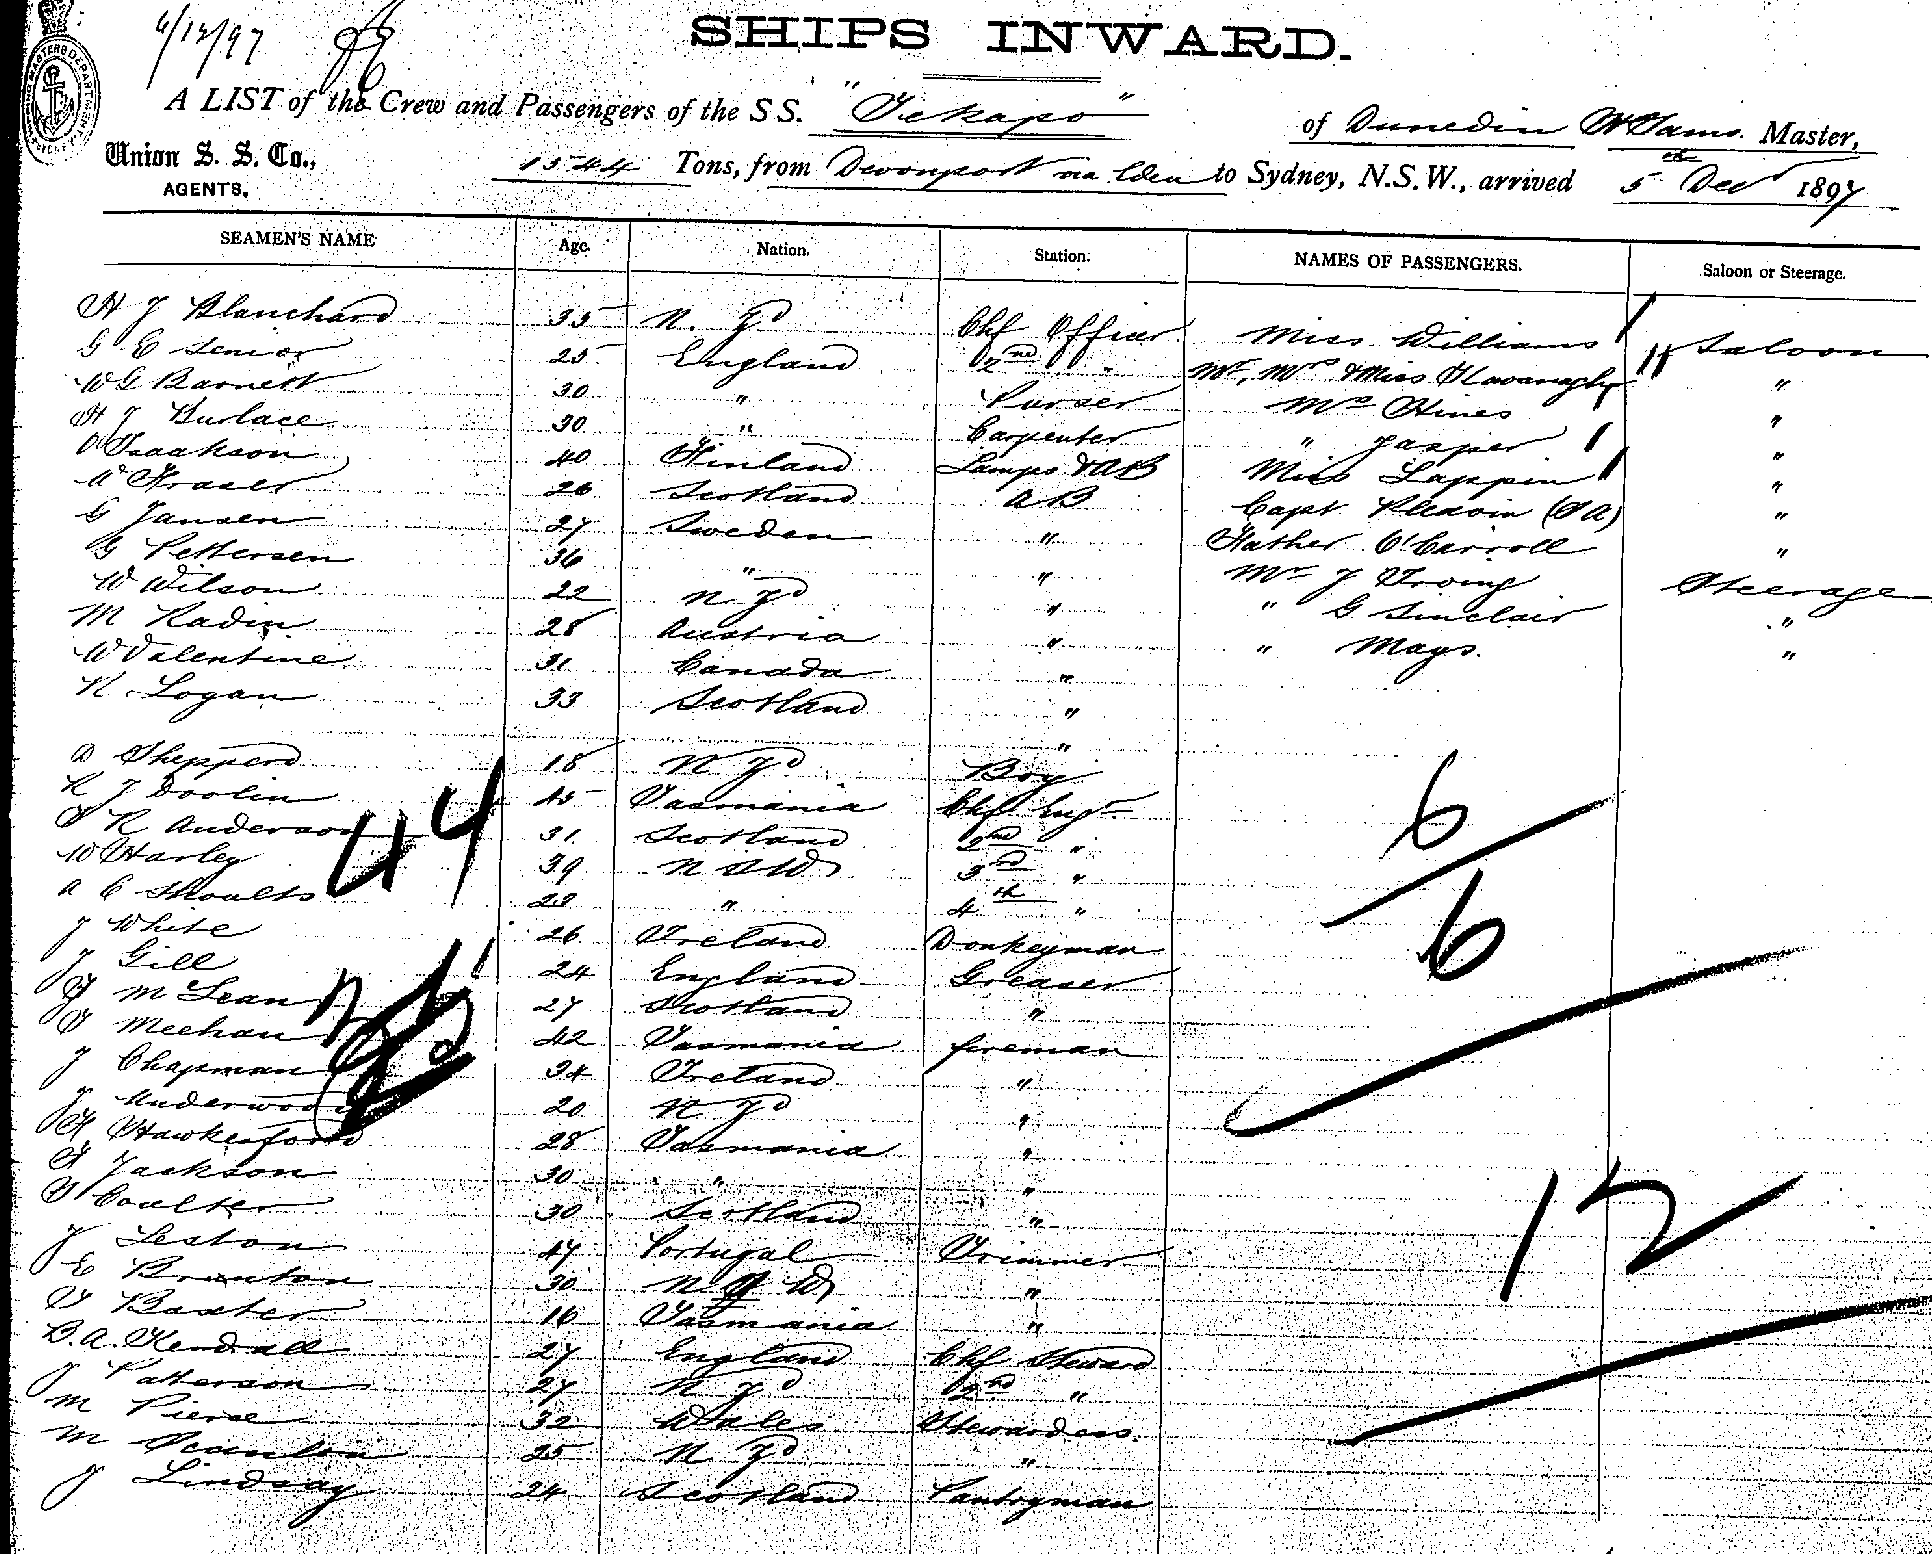 6/12/97
SHIPS INWARD.
A LIST of the Crew and Passengers of the SS. "Tekapo" of Dunedin Master,
Union S. S. Co., AGENTS. 1544 Tons, from Devonport via to Sydney, N.S.W., arrived 5th Dec 1897
SEAMEN'S NAME Age. Nation. Station. NAMES OF PASSENGERS. Saloon or Steerage.
H J Blanchard 35 N. Zd Chf Officer Miss Williams Saloon
G E Senior 25 England 2nd " Mr, Mrs & Miss Kavanagh "
W G Barnett 30 " Purser Mrs Hines "
H J Burlace 30 " Carpenter " Jasper "
O Isaakson 40 Finland Lamps & AB Miss Lappin "
A Fraser 26 Scotland AB Capt (SA) "
G Jansen 27 Sweden " Father O'Carroll "
G Pettersen 36 " " Mr J Irving Steerage
W Wilson 22 N Zd " " G Sinclair "
M Radin 28 Austria " " Mays. "
W Valentine 31 Canada "
R. Logan 33 Scotland "
"
D Shepperd 18 N Zd Boy
R J Doolin 45 Tasmania Chf Engr
T R Anderson 31 Scotland 2nd "
W Harley 39 N S W 3rd "
A C Shoults 28 " 4th "
J White 26 Ireland Donkeyman
J Gill 24 England Greaser
J McLean 27 Scotland "
T Meehan 42 Tasmania fireman
J Chapman 34 Ireland "
J Underwood 20 N Zd "
H Hawkesford 28 Tasmania "
T Jackson 30 " "
T Coulter 30 Scotland "
J Leston 47 Portugal Trimmer
E Brunton 30 N S W "
T Baxter 16 Tasmania "
B. A. Kendall 27 England Chf Steward
J Patterson 27 N Zd 2nd "
M Pierce 32 Wales Stewardess.
M Scanlan 25 N Zd "
J Lindsay 24 Scotland Pantryman
44
6
6
12